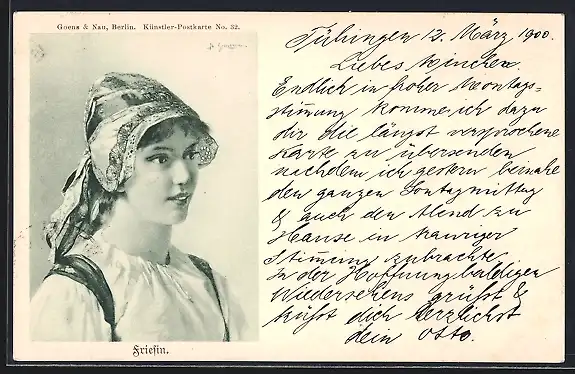 Goens & Nau, Berlin. Künstler-Postkarte No. 32.
Friesin.
Tübingen 12. März 1900.
Liebes Minchen.
Endlich in froher Montags-
stimmung komme ich dazu
dir die längst versprochene
Karte zu übersenden
nachdem ich gestern beinahe
den ganzen Sontagmittag
& auch den Abend zu
Hause in trauriger
Stimmung zubrachte
In der Hoffnung baldigen
Wiedersehens grüßt &
küßt dich herzlichst
dein Otto.